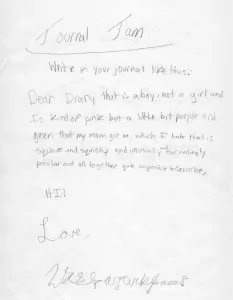 Journal Jam
Write in your journal like this.
Dear Diary that is a boy, not a girl and
Is kind of pink but a little bit purple and
green that my mom got me which I hate that is
square and squishy and unusually exceedingly
peculiar and all together quite impossible to describe,
HI!
Love,